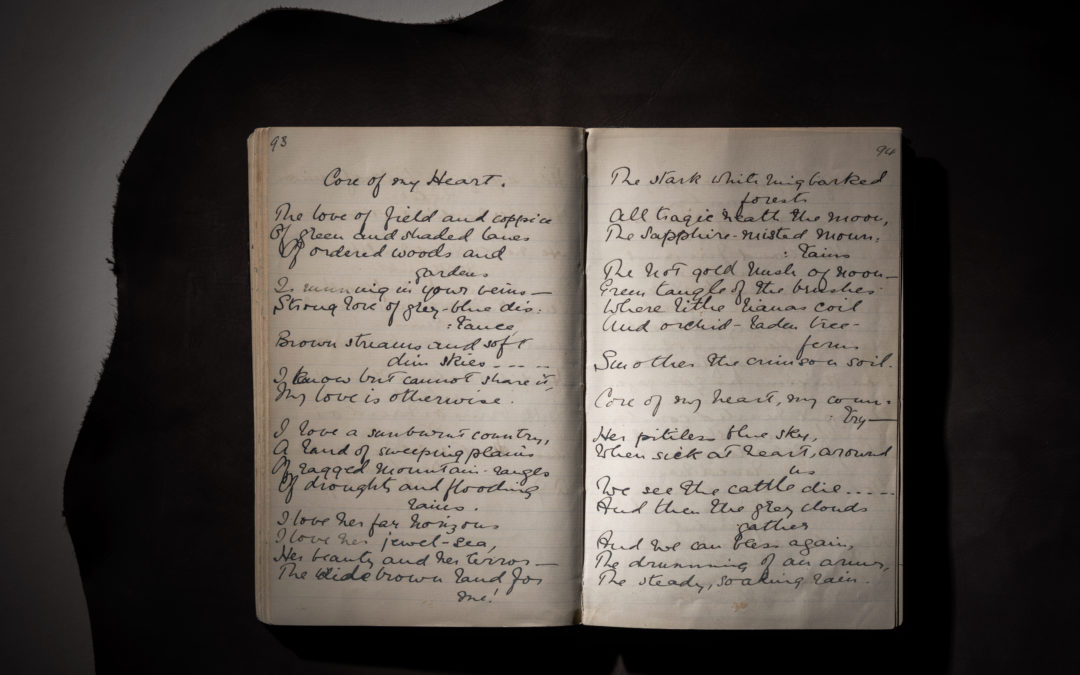 93
Core of my Heart.
The love of field and coppice
Of green and shaded lanes
Of ordered woods and
gardens
Is running in your veins—
Strong love of grey-blue dis:
:tance,
Brown streams and soft
dim skies - - - -
I know but cannot share it,
My love is otherwise.
I love a sunburnt country,
A land of sweeping plains
Of ragged mountain-ranges
Of droughts and flooding
rains.
I love her far horizons
I love her jewel-sea,
Her beauty and her terror—
The wide brown land for
me!
94
The stark white ringbarked
forests
All tragic neath the moon,
The sapphire-misted moun:
:tains
The hot gold hush of noon—
Green tangle of the brushes
Where lithe lianas coil
And orchid-laden tree-
ferns
Smother the crimson soil.
Core of my heart, my coun:
:try—
Her pitiless blue sky,
When sick at heart, around
us
We see the cattle die.....
And then the grey clouds
gather
And we can bless again,
The drumming of an army,
The steady, soaking rain.